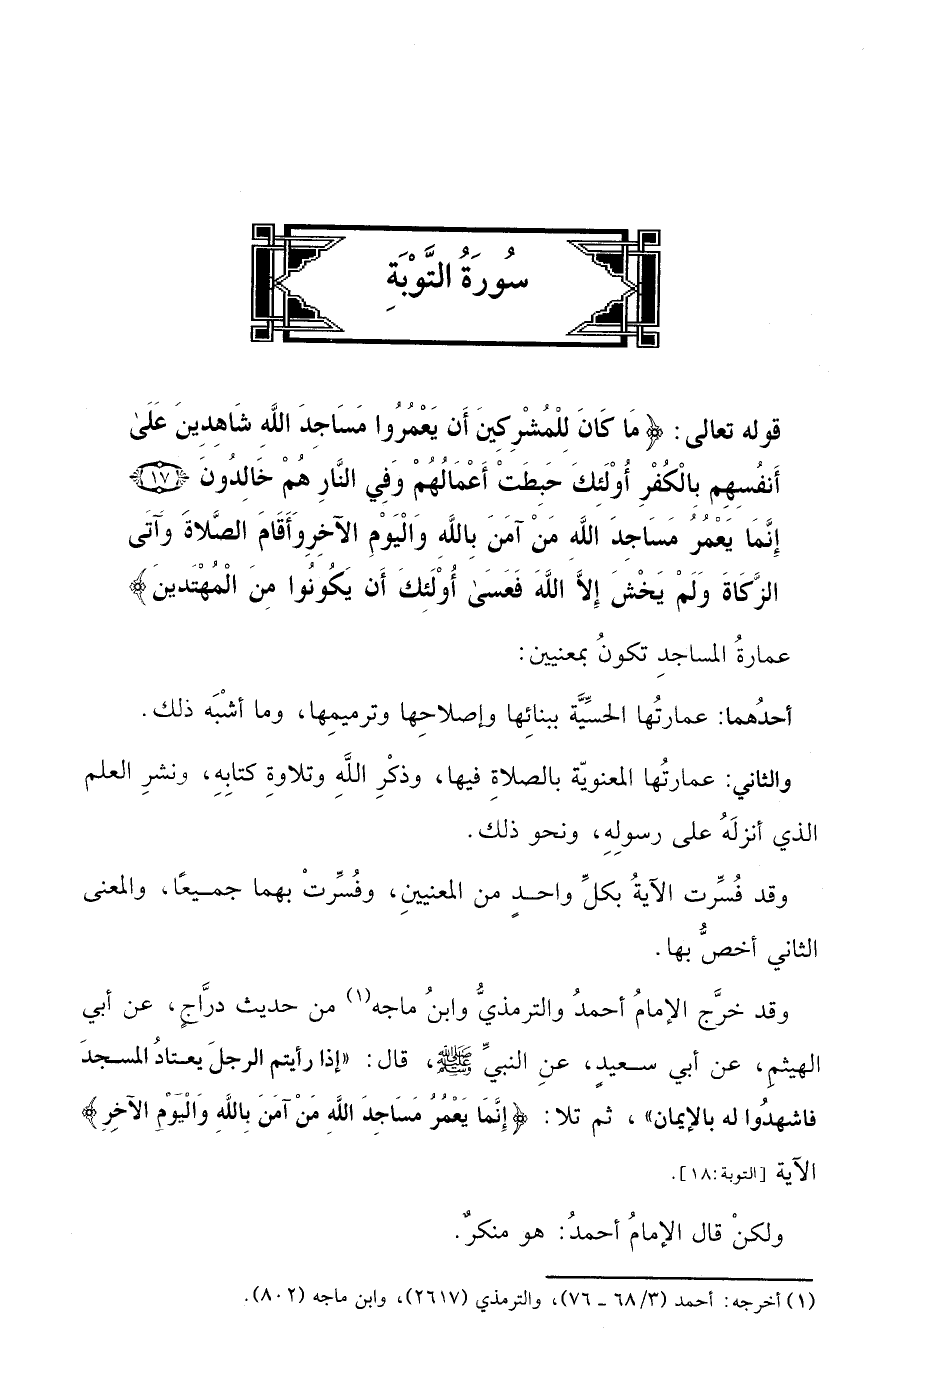 سُورَةُ التَّوْبَةِ
قوله تعالى: ﴿مَا كَانَ لِلْمُشْرِكِينَ أَن يَعْمُرُوا مَسَاجِدَ اللَّهِ شَاهِدِينَ عَلَىٰ
أَنفُسِهِم بِالْكُفْرِ أُوْلَئِكَ حَبِطَتْ أَعْمَالُهُمْ وَفِي النَّارِ هُمْ خَالِدُونَ ﴿١٧﴾
إِنَّمَا يَعْمُرُ مَسَاجِدَ اللَّهِ مَنْ آمَنَ بِاللَّهِ وَالْيَوْمِ الآخِرِ وَأَقَامَ الصَّلاةَ وَآتَى
الزَّكَاةَ وَلَمْ يَخْشَ إِلاَّ اللَّهَ فَعَسَىٰ أُوْلَئِكَ أَن يَكُونُوا مِنَ الْمُهْتَدِينَ﴾
عمارةُ المساجدِ تكونُ بمعنيين:
أحدُهما: عمارتُها الحسيَّة ببنائِها وإصلاحِها وترميمِها، وما أشْبَه ذلك.
والثاني: عمارتُها المعنويّة بالصلاةِ فيها، وذكْرِ اللَّهِ وتلاوةِ كتابِهِ، ونشرِ العلم
الذي أنزلَهُ على رسولِهِ، ونحو ذلك.
وقد فُسِّرت الآيةُ بكلِّ واحدٍ من المعنيينِ، وفُسِّرتْ بهما جميعًا، والمعنى
الثاني أخصُّ بها.
وقد خرَّج الإمامُ أحمدُ والترمذيُّ وابنُ ماجه(١) من حديث درَّاجٍ، عن أبي
الهيثمِ، عن أبي سعيدٍ، عنِ النبيِّ ﷺ، قال: «إذا رأيتم الرجلَ يعتادُ المسجدَ
فاشهدُوا له بالإيمان» ، ثم تلا: ﴿إِنَّمَا يَعْمُرُ مَسَاجِدَ اللَّهِ مَنْ آمَنَ بِاللَّهِ وَالْيَوْمِ الآخِرِ﴾
الآية [التوبة:١٨].
ولكنْ قال الإمامُ أحمدُ: هو منكرٌ.
(١) أخرجه: أحمد (٣/ ٦٨ ـ ٧٦)، والترمذي (٢٦١٧)، وابن ماجه (٨٠٢).